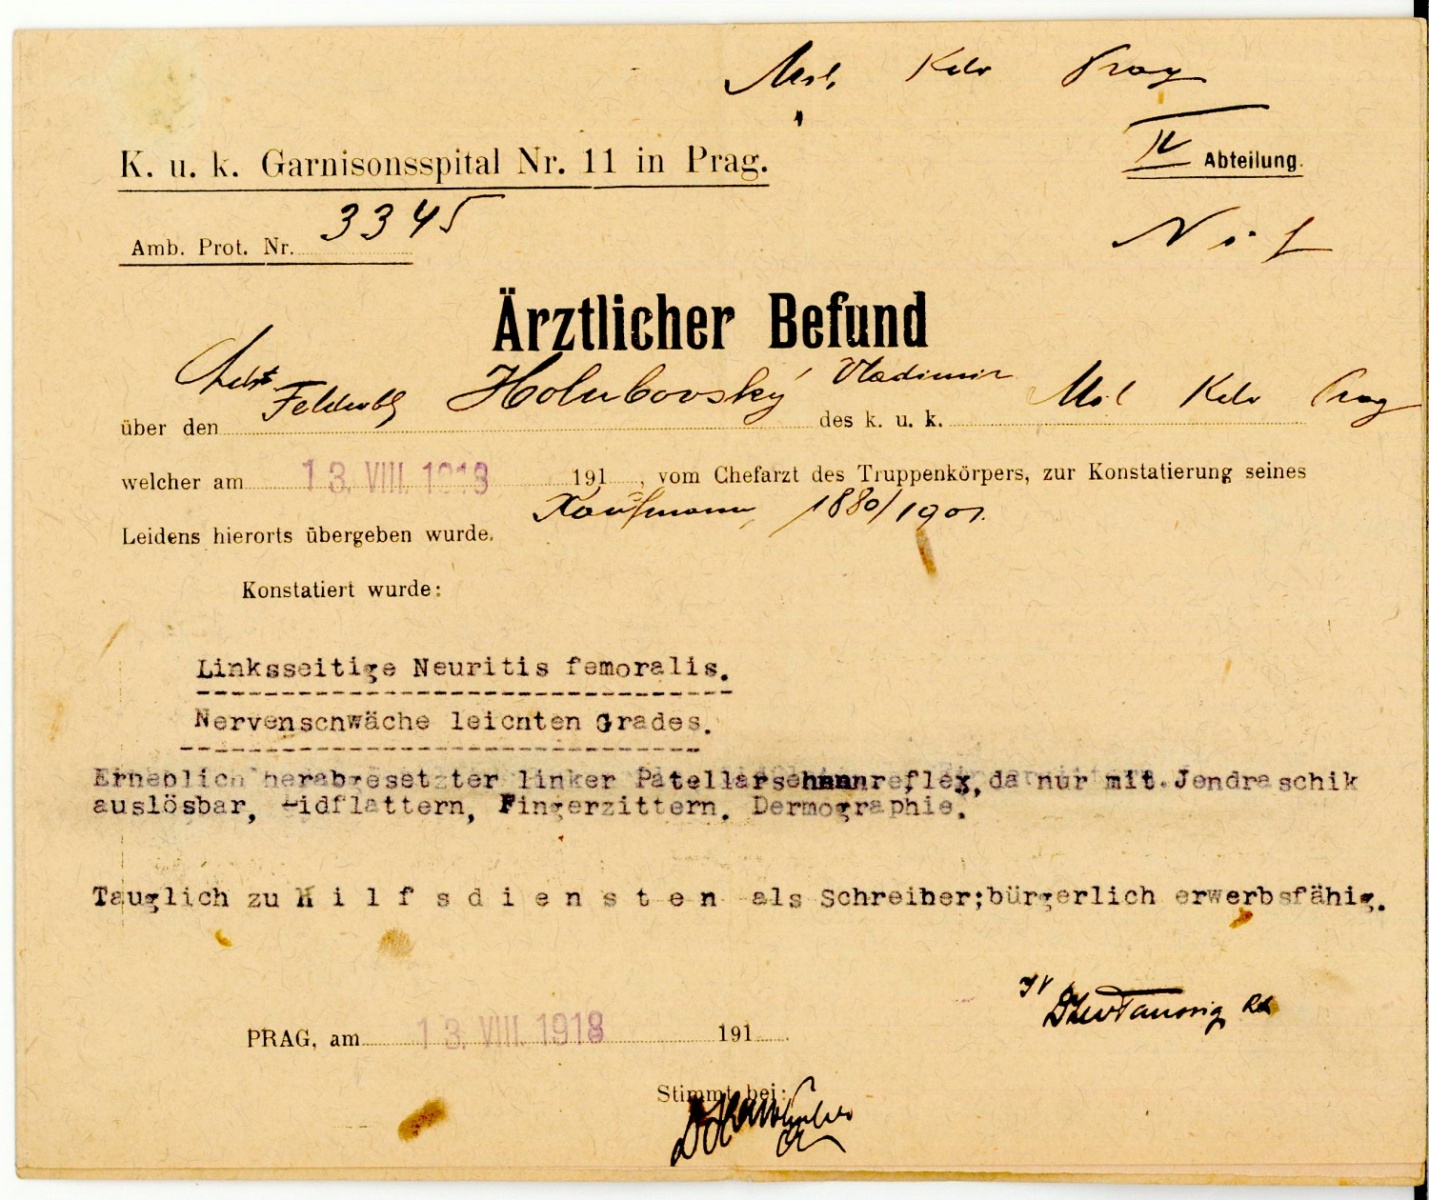 Mil. Kdo Prag
K. u. k. Garnisonsspital Nr. 11 in Prag.
IV Abteilung.
Amb. Prot. Nr. 3345
Ärztlicher Befund
über den Holubovský Vladimir des k. u. k. Mil Kdo Prag
welcher am 13. VIII. 1918 191 , vom Chefarzt des Truppenkörpers, zur Konstatierung seines
Kaufmann, 1880/1901.
Leidens hierorts übergeben wurde.
Konstatiert wurde:
Linksseitige Neuritis femoralis.
Nervenschwäche leichten Grades.
Erheblich herabgesetzter linker Patellarsehnenreflex, da nur mit Jendraschik
auslösbar, Lidflattern, Fingerzittern. Dermographie.
Tauglich zu H i l f s d i e n s t e n als Schreiber;bürgerlich erwerbsfähig.
PRAG, am 13. VIII. 1918 191 .
Stimmt bei: